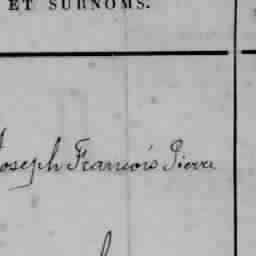 ET SURNOMS.
Joseph Francois Pierre